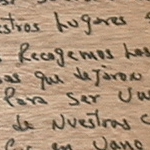 estros Lugares
Recogemos Los
as que dejaron
Para Ser
de Nuestros
en